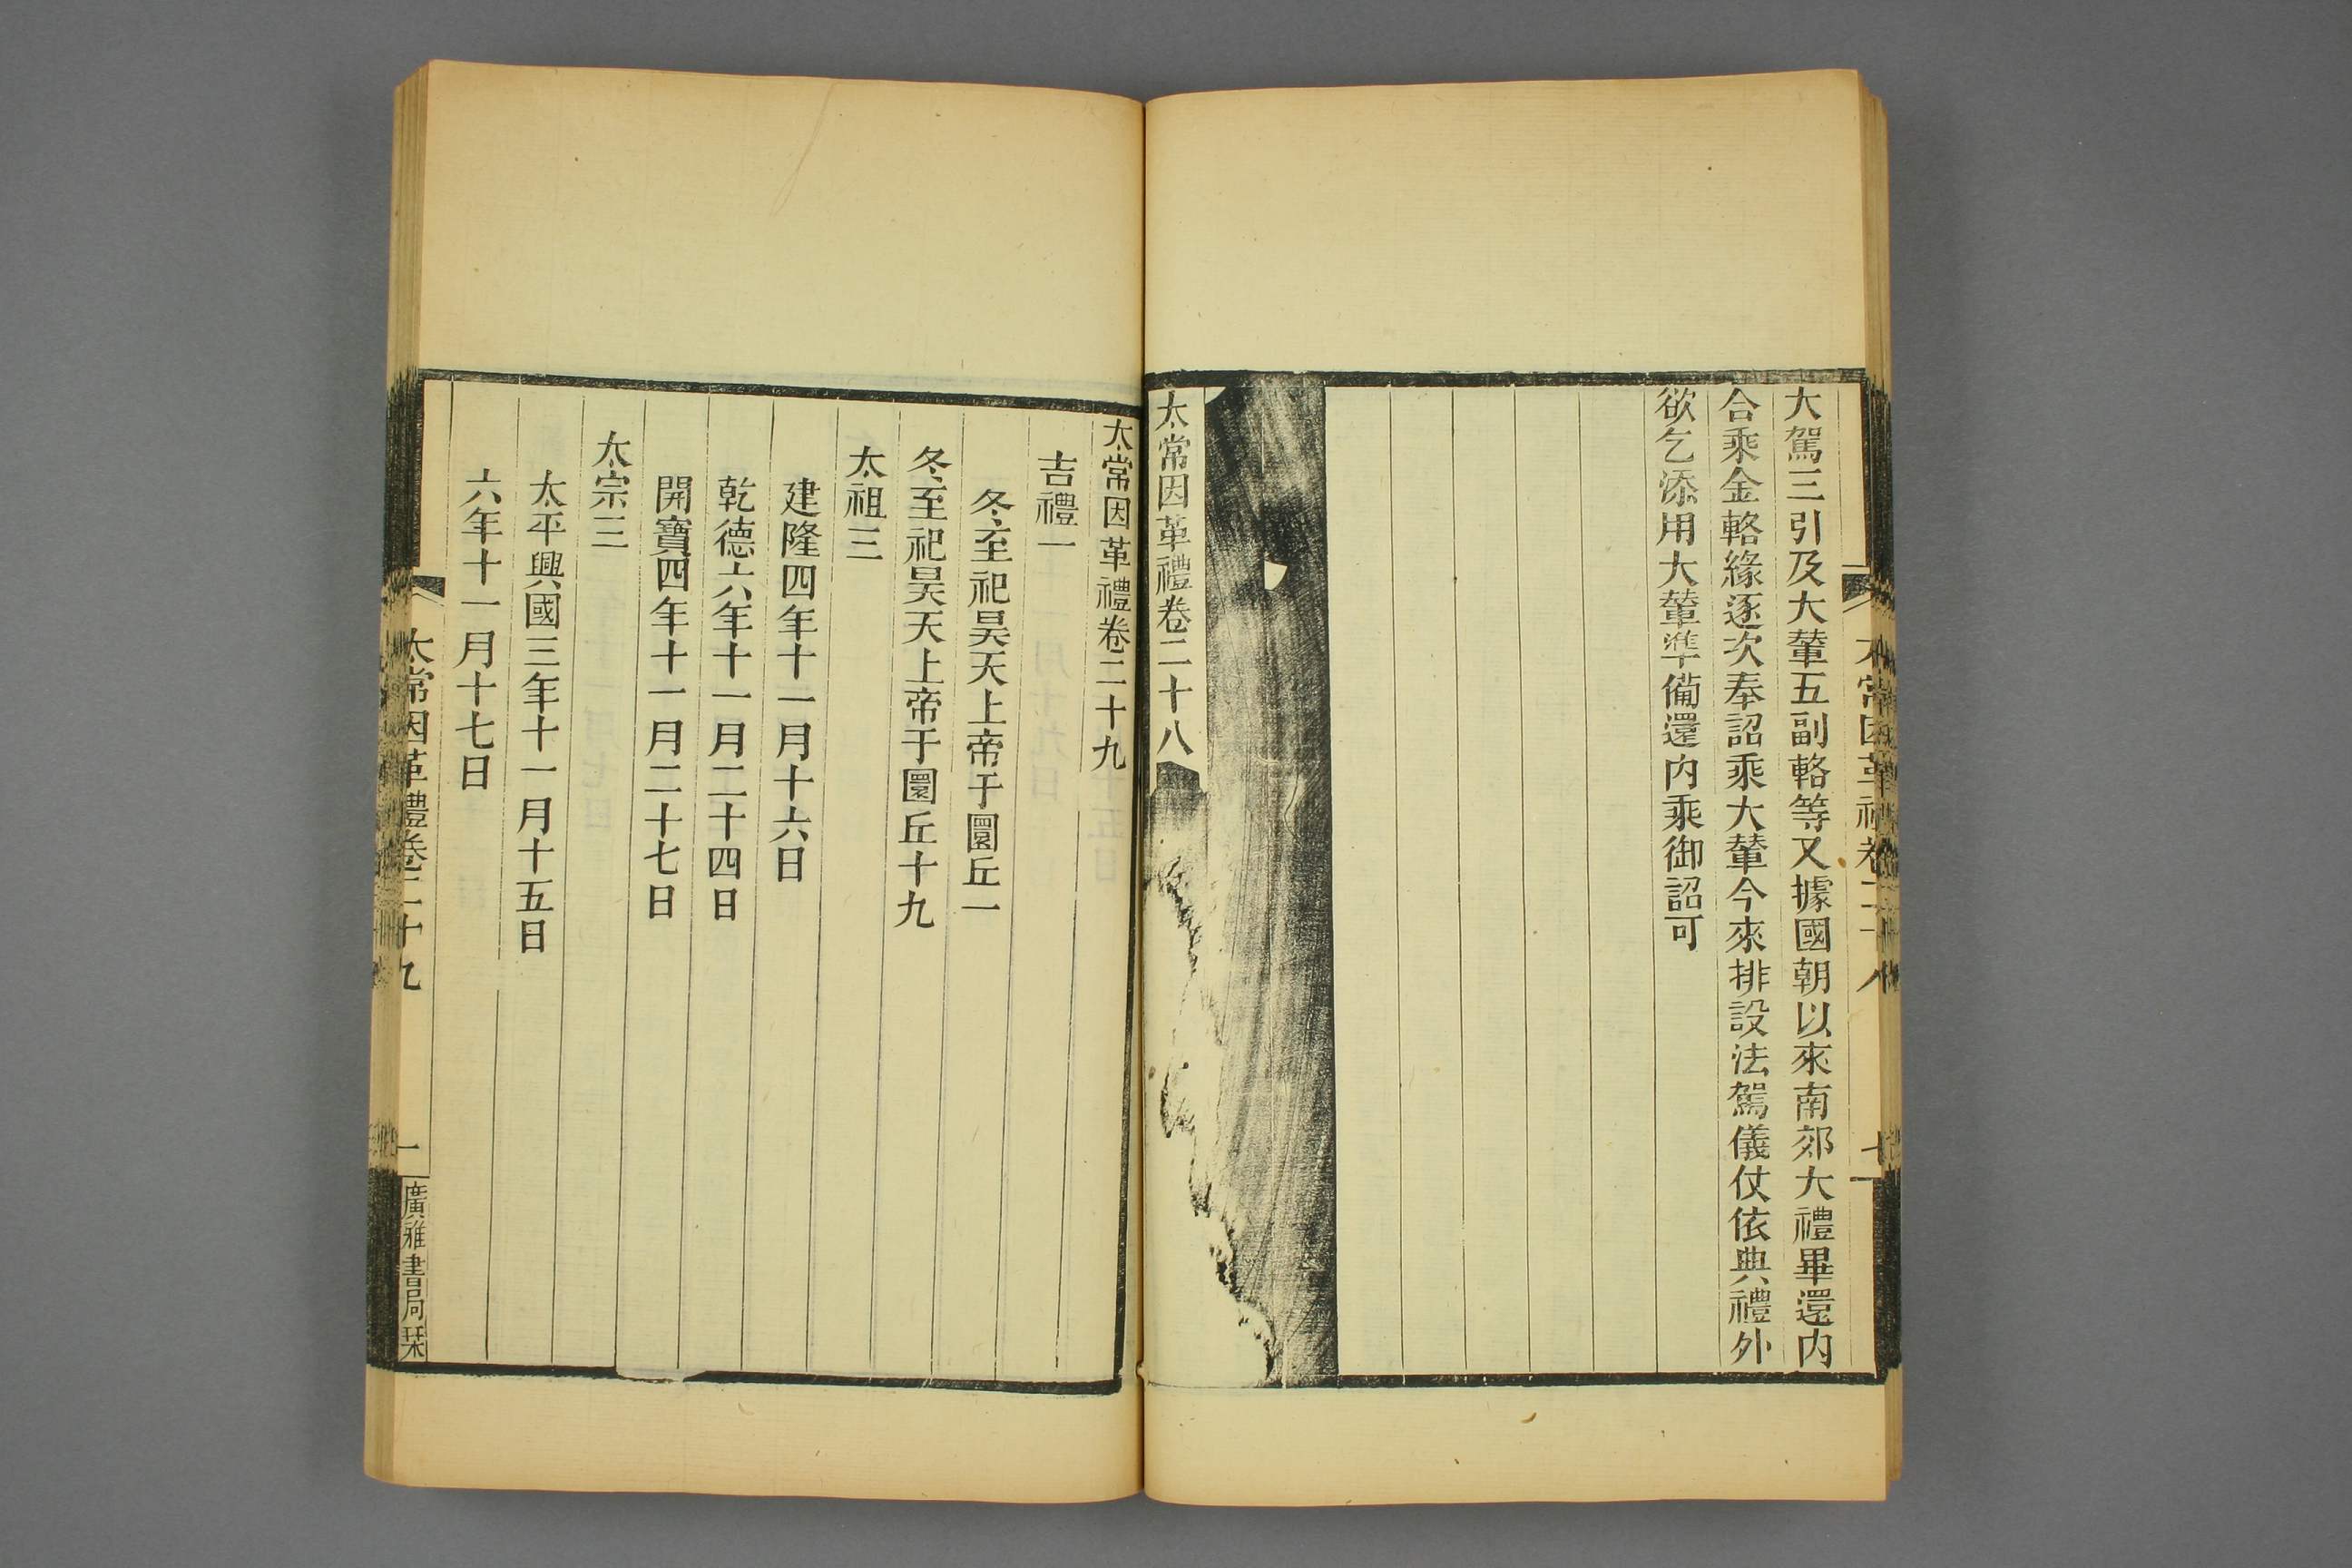 大駕三引及大輦五副輅等又據國朝以來南郊大禮畢還内
合乘金輅緣逐次奉詔乘大輦今來排設法駕儀仗依典禮外
欲乞添用大輦準備還内乘御詔可
太常因革禮卷二十八
太常因革禮卷二十九
吉禮一
冬至祀昊天上帝于圜丘一
冬至祀昊天上帝于圜丘十九
太祖三
建隆四年十一月十六日
乾德六年十一月二十四日
開寶四年十一月二十七日
太宗三
太平興國三年十一月十五日
六年十一月十七日
太常因革禮卷二十九
一
廣雅書局栞